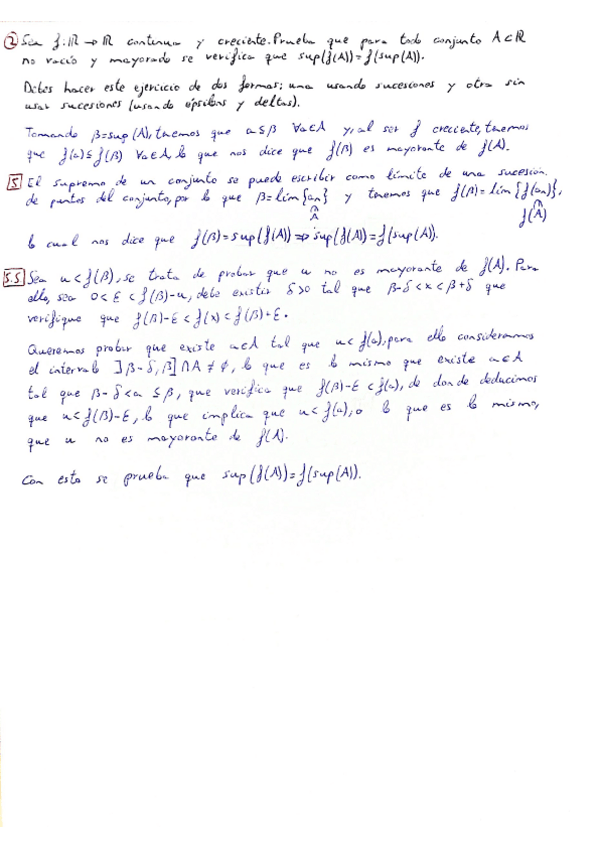 ② Sea f: ℝ → ℝ continua y creciente. Prueba que para todo conjunto A ⊂ ℝ
no vacío y mayorado se verifica que sup(f(A)) = f(sup(A)).
Debes hacer este ejercicio de dos formas: una usando sucesiones y otra sin
usar sucesiones (usando épsilons y deltas).
Tomando β = sup(A), tenemos que a ≤ β ∀a∈A y, al ser f creciente, tenemos
que f(a) ≤ f(β) ∀a∈A, lo que nos dice que f(β) es mayorante de f(A).
S El supremo de un conjunto se puede escribir como límite de una sucesión
de puntos del conjunto, por lo que β = lim{an} y tenemos que f(β) = lim {f(an)},
∩ ∩
A f(A)
lo cual nos dice que f(β) = sup(f(A)) ⇒ sup(f(A)) = f(sup(A)).
S.S Sea u < f(β), se trata de probar que u no es mayorante de f(A). Para
ello, sea 0 < ε < f(β) - u, debe existir δ > 0 tal que β - δ < x < β + δ que
verifique que f(β) - ε < f(x) < f(β) + ε.
Queremos probar que existe a∈A tal que u < f(a), para ello consideramos
el intervalo ]β - δ, β] ∩ A ≠ ∅, lo que es lo mismo que existe a∈A
tal que β - δ < a ≤ β, que verifica que f(β) - ε < f(a), de donde deducimos
que u < f(β) - ε, lo que implica que u < f(a), o lo que es lo mismo,
que u no es mayorante de f(A).
Con esto se prueba que sup(f(A)) = f(sup(A)).